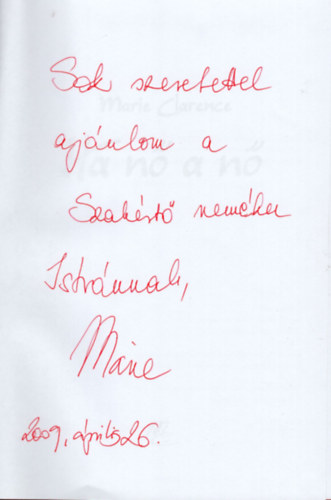 Sok szeretettel
ajánlom a
Szakértő
Istvánnak,
Marie
2009, április 26.
Marie Clarence
a nő